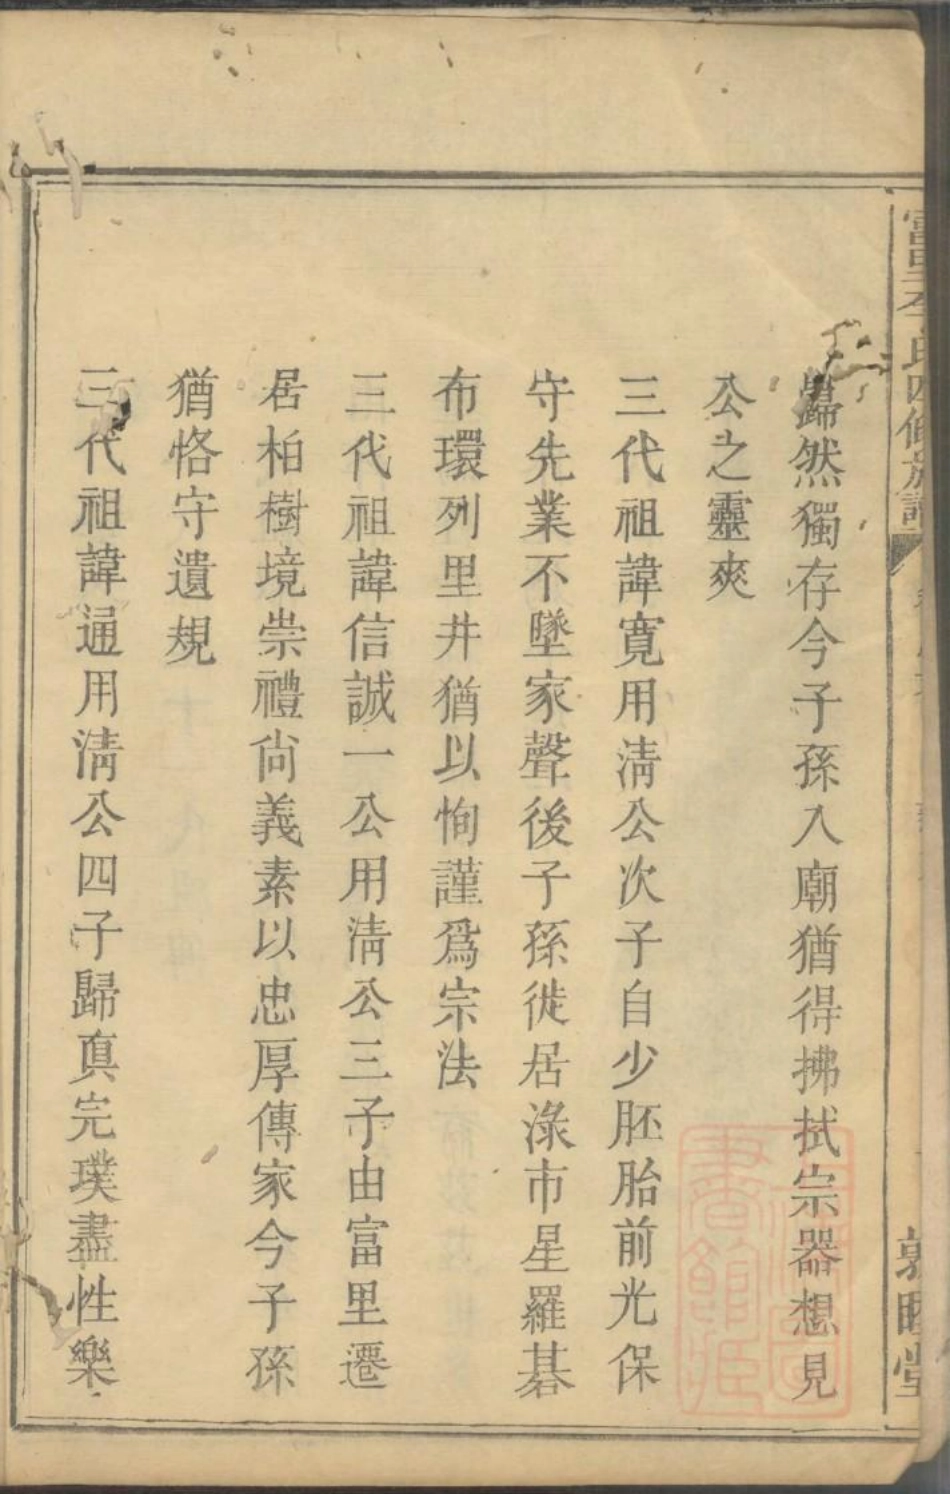 富里李氏四修族譜
敦睦堂
歸然獨存今子孫入廟猶得拂拭宗器想見
公之靈爽
三代祖諱寬用淸公次子自少胚胎前光保
守先業不墜家聲後子孫徙居淥市星羅碁
布環列里井猶以恂謹爲宗法
三代祖諱信誠一公用淸公三子由富里遷
居柏樹境崇禮尙義素以忠厚傳家今子孫
猶恪守遺規
三代祖諱通用淸公四子歸眞完璞盡性樂